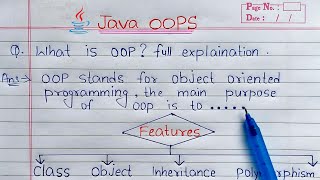 Page No. :
Date : / /
Java OOPS
Q. What is OOP? full explaination.
Ans:→ OOP stands for object oriented
programming, the main purpose
of oop is to .....
Features
Class Object Inheritance Polymorphism